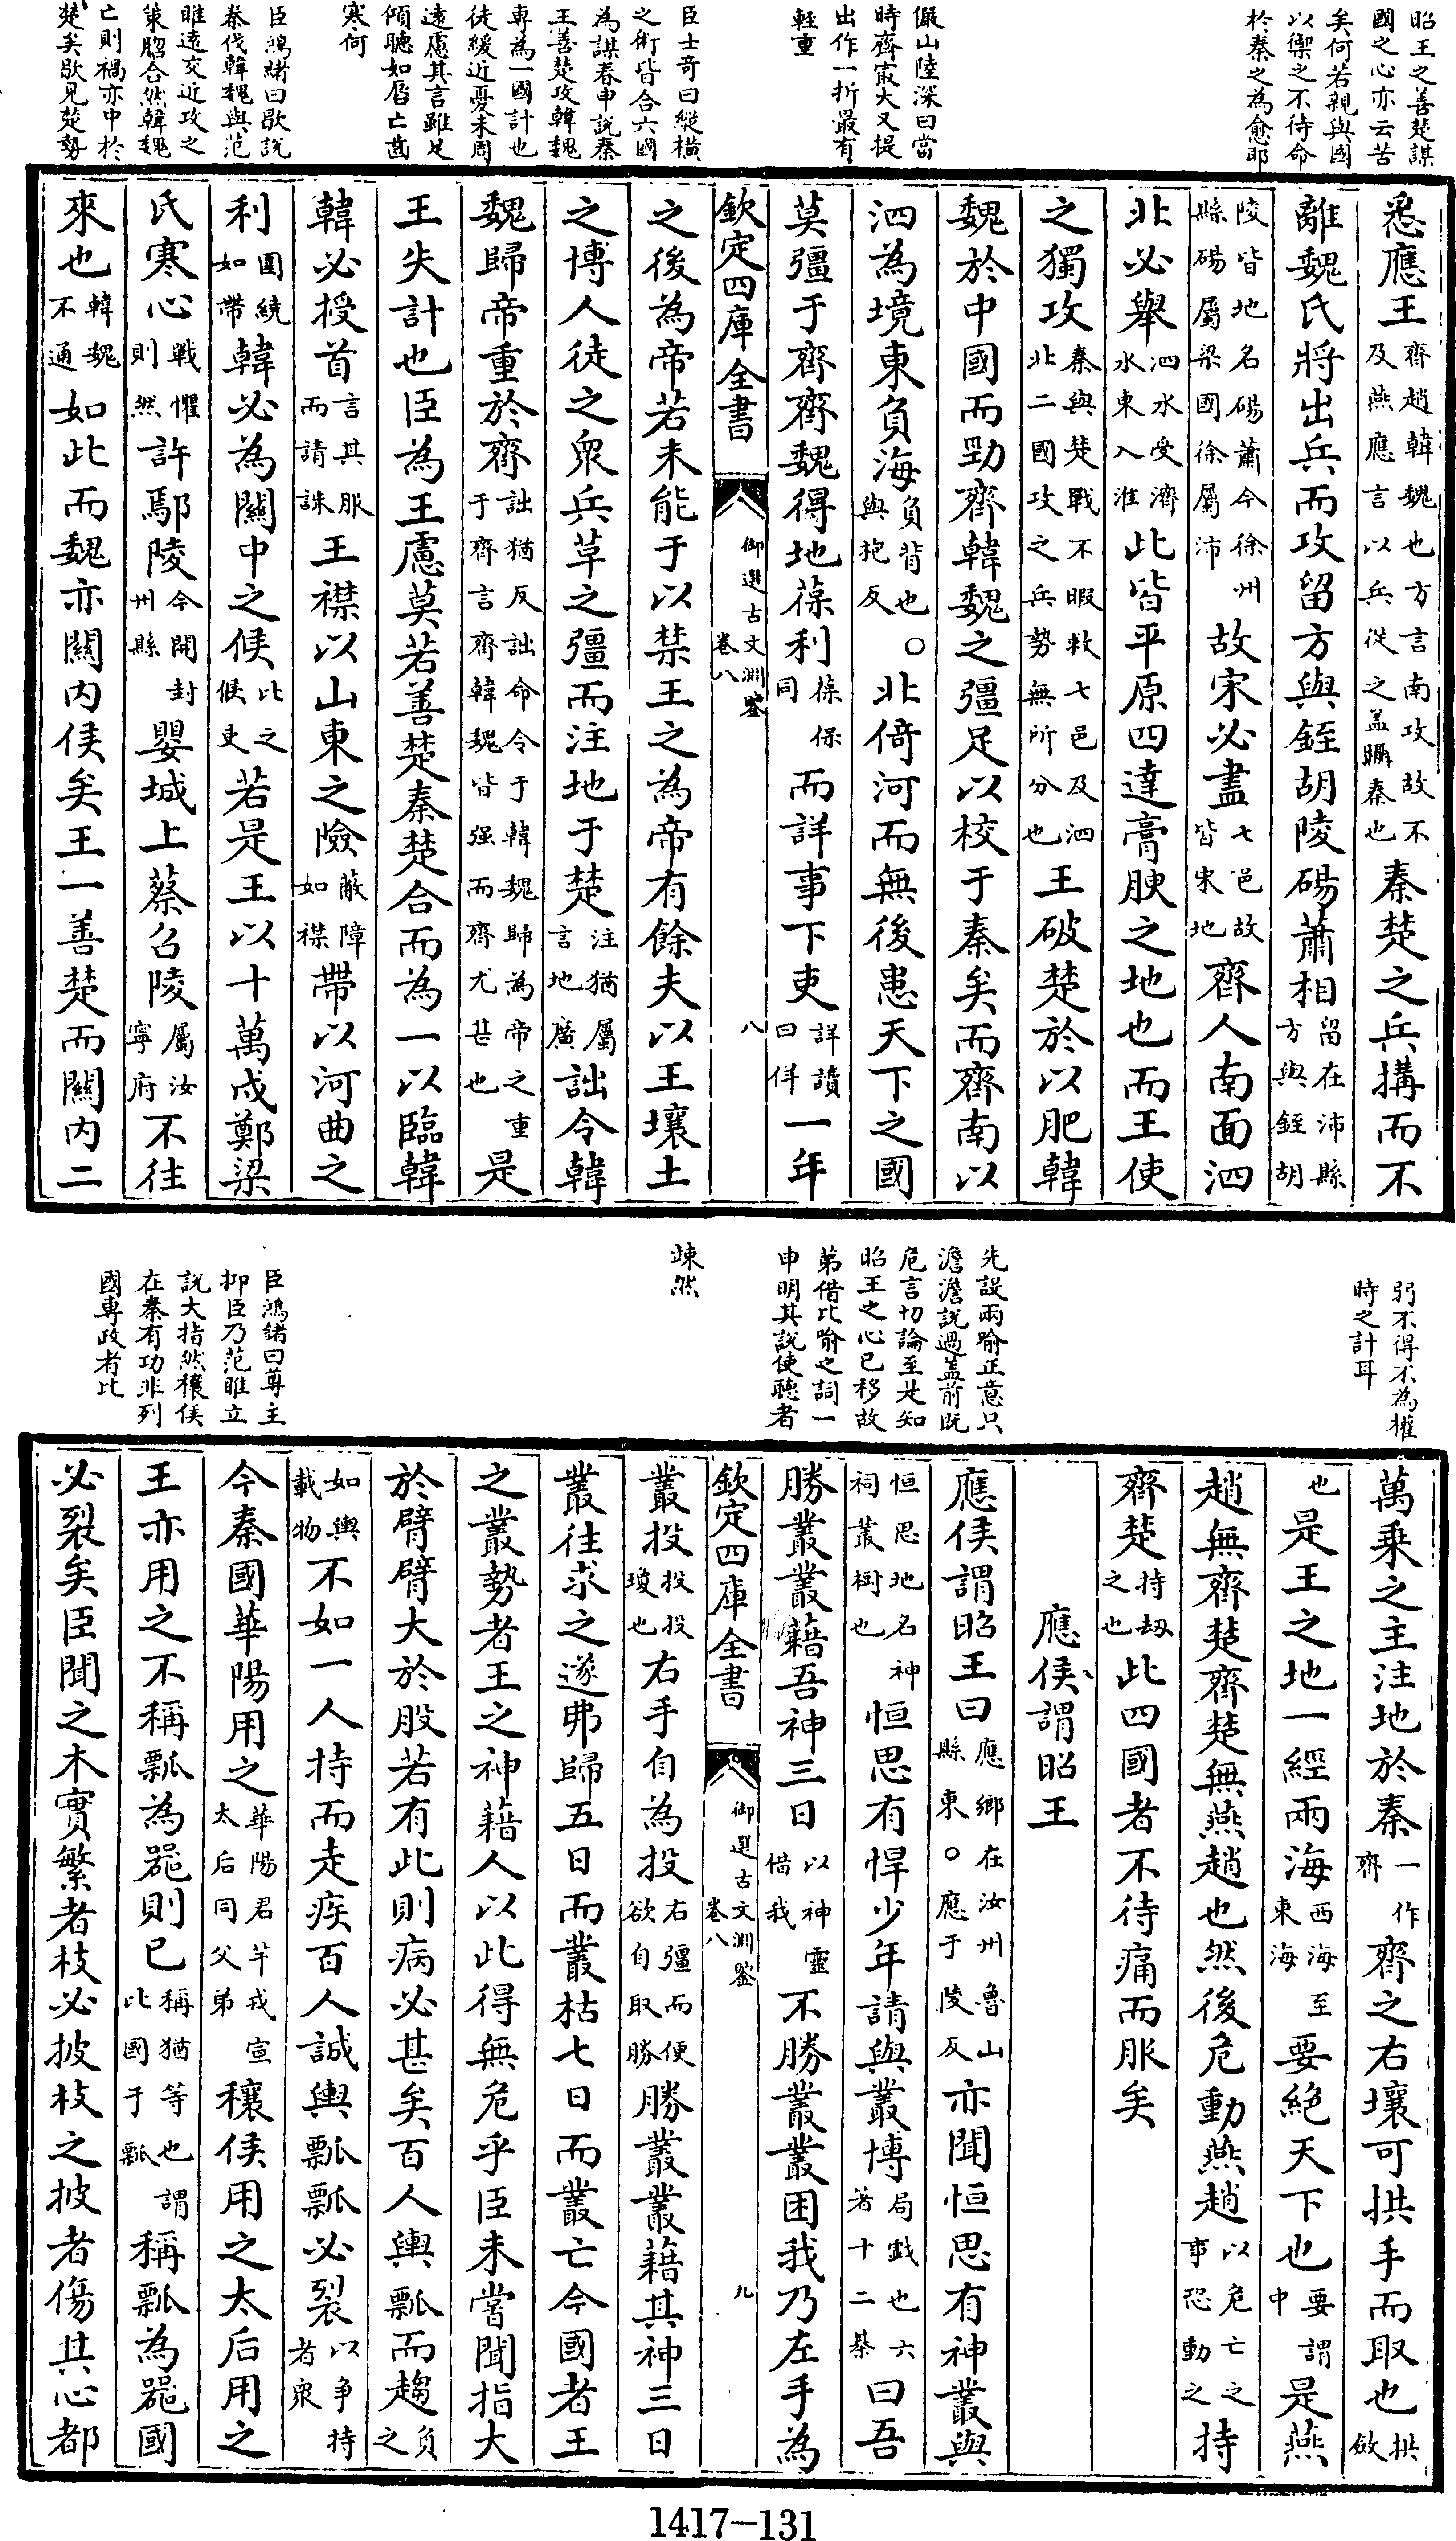 昭王之善楚謀
國之心亦云苦
矣何若親與國
以禦之不待命
於秦之為愈耶
儼山陸深曰當
時齊㝡大又提
出作一折最有
輕重
臣士奇曰縱横
之術皆合六國
為謀春申說秦
王善楚攻韓魏
専為一國計也
徒緩近憂未周
遠慮其言雖足
傾聽如唇亡齒
寒何
臣鴻緒曰歇說
秦伐韓魏與范
睢遠交近攻之
策脗合然韓魏
亡則禍亦中於
楚矣歇見楚勢
悉應王齊趙韓魏也方言南攻故不及燕應言以兵從之盖躡秦也秦楚之兵搆而不
離魏氏將出兵而攻留方與銍胡陵碭蕭相留在沛縣方與銍胡
陵皆地名碭蕭今徐州縣碭屬梁國徐屬沛故宋必盡七邑故皆宋地齊人南面泗
北必舉泗水受濟水東入淮此皆平原四達膏腴之地也而王使
之獨攻秦與楚戰不暇救七邑及泗北二國攻之兵勢無所分也王破楚於以肥韓
魏於中國而勁齊韓魏之彊足以校于秦矣而齊南以
泗為境東負海負背也與抱反○北倚河而無後患天下之國
莫彊于齊齊魏得地葆利葆保同而詳事下吏詳讀曰佯一年
欽定四庫全書 御選古文淵鑒 卷八 八
之後為帝若未能于以禁王之為帝有餘夫以王壤土
之博人徒之衆兵革之彊而注地于楚注猶屬言地廣詘令韓
魏歸帝重於齊詘猶反詘命令于韓魏歸為帝之重于齊言齊韓魏皆强而齊尤甚也是
王失計也臣為王慮莫若善楚秦楚合而為一以臨韓
韓必授首言其服而請誅王襟以山東之險蔽障如襟帶以河曲之
利圍繞如帶韓必為關中之候此之候吏若是王以十萬戍鄭梁
氏寒心戰懼則然許鄢陵今開封州縣嬰城上蔡召陵屬汝寧府不往
來也韓魏不通如此而魏亦關内侯矣王一善楚而關内二
弱不得不為權
時之計耳
先設兩喻正意只
澹澹說過盖前既
危言切論至是知
昭王之心已移故
第借比喻之詞一
申明其說使聽者
竦然
臣鴻緒曰尊主
抑臣乃范睢立
說大指然穰侯
在秦有功非列
國専政者比
萬乗之主注地於秦一作齊齊之右壤可拱手而取也拱斂
也是王之地一經兩海西海至東海要絶天下也要謂中是燕
趙無齊楚齊楚無燕趙也然後危動燕趙以危亡之事恐動之持
齊楚持劫之也此四國者不待痛而服矣
應侯謂昭王
應侯謂昭王曰應鄉在汝州魯山縣東○應于陵反亦聞恒思有神叢與
恒思地名神祠叢樹也恒思有悍少年請與叢博局戲也六著十二棊曰吾
勝叢叢籍吾神三日以神靈借我不勝叢叢困我乃左手為
欽定四庫全書 御選古文淵鑒 卷八 九
叢投投投瓊也右手自為投右彊而便欲自取勝勝叢叢籍其神三日
叢往求之遂弗歸五日而叢枯七日而叢亡今國者王
之叢勢者王之神藉人以此得無危乎臣未嘗聞指大
於臂臂大於股若有此則病必甚矣百人輿瓢而趨負之
如輿載物不如一人持而走疾百人誠輿瓢瓢必裂以争持者衆
今秦國華陽用之華陽君芊戎宣太后同父弟穰侯用之太后用之
王亦用之不稱瓢為器則已稱猶等也謂此國于瓢稱瓢為器國
必裂矣臣聞之木實繁者枝必披枝之披者傷其心都
1417—131